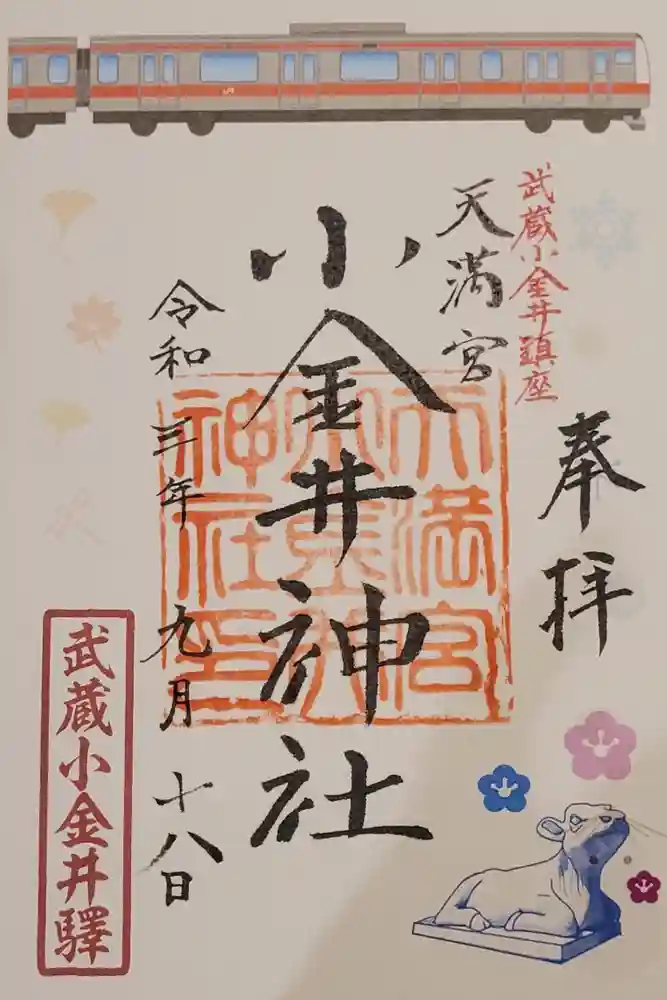 JR
奉拝
武蔵小金井鎮座
天満宮
小金井神社
令和三年九月十八日
天満宮
小金井
神社印
武蔵小金井驛